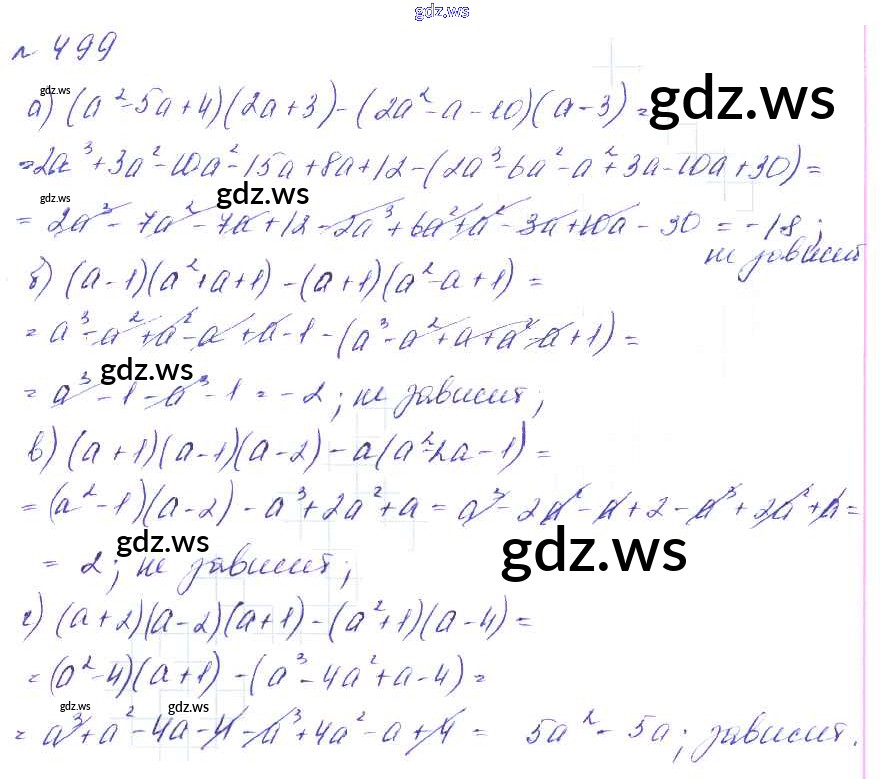 gdz.ws
№ 499
gdz.ws
а) (a²-5a+4)(2a+3)-(2a²-a-10)(a-3)=
gdz.ws
=2a³+3a²-10a²-15a+8a+12-(2a³-6a²-a²+3a-10a+30)=
gdz.ws
gdz.ws
= 2a³-7a²-7a+12-2a³+6a²+a²-3a+10a-30=-18;
не зависит
б) (a-1)(a²+a+1)-(a+1)(a²-a+1)=
= a³-a²+a²-a+a-1-(a³-a²+a+a²-a+1)=
gdz.ws
= a³-1-a³-1=-2; не зависит;
в) (a+1)(a-1)(a-2)-a(a²-2a-1)=
= (a²-1)(a-2)-a³+2a²+a=a³-2a²-a+2-a³+2a²+a=
gdz.ws
gdz.ws
= 2; не зависит;
г) (a+2)(a-2)(a+1)-(a²+1)(a-4)=
= (a²-4)(a+1)-(a³-4a²+a-4)=
gdz.ws
gdz.ws
= a³+a²-4a-4-a³+4a²-a+4= 5a²-5a; зависит.